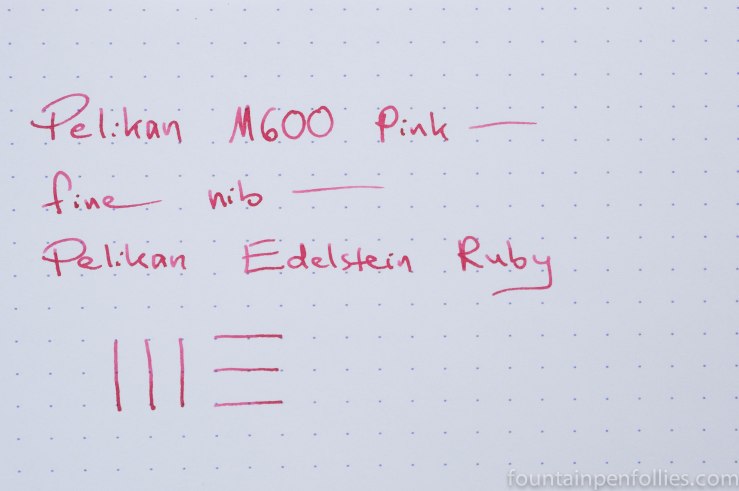 Pelikan M600 Pink —
fine nib —
Pelikan Edelstein Ruby
fountainpenfollies.com